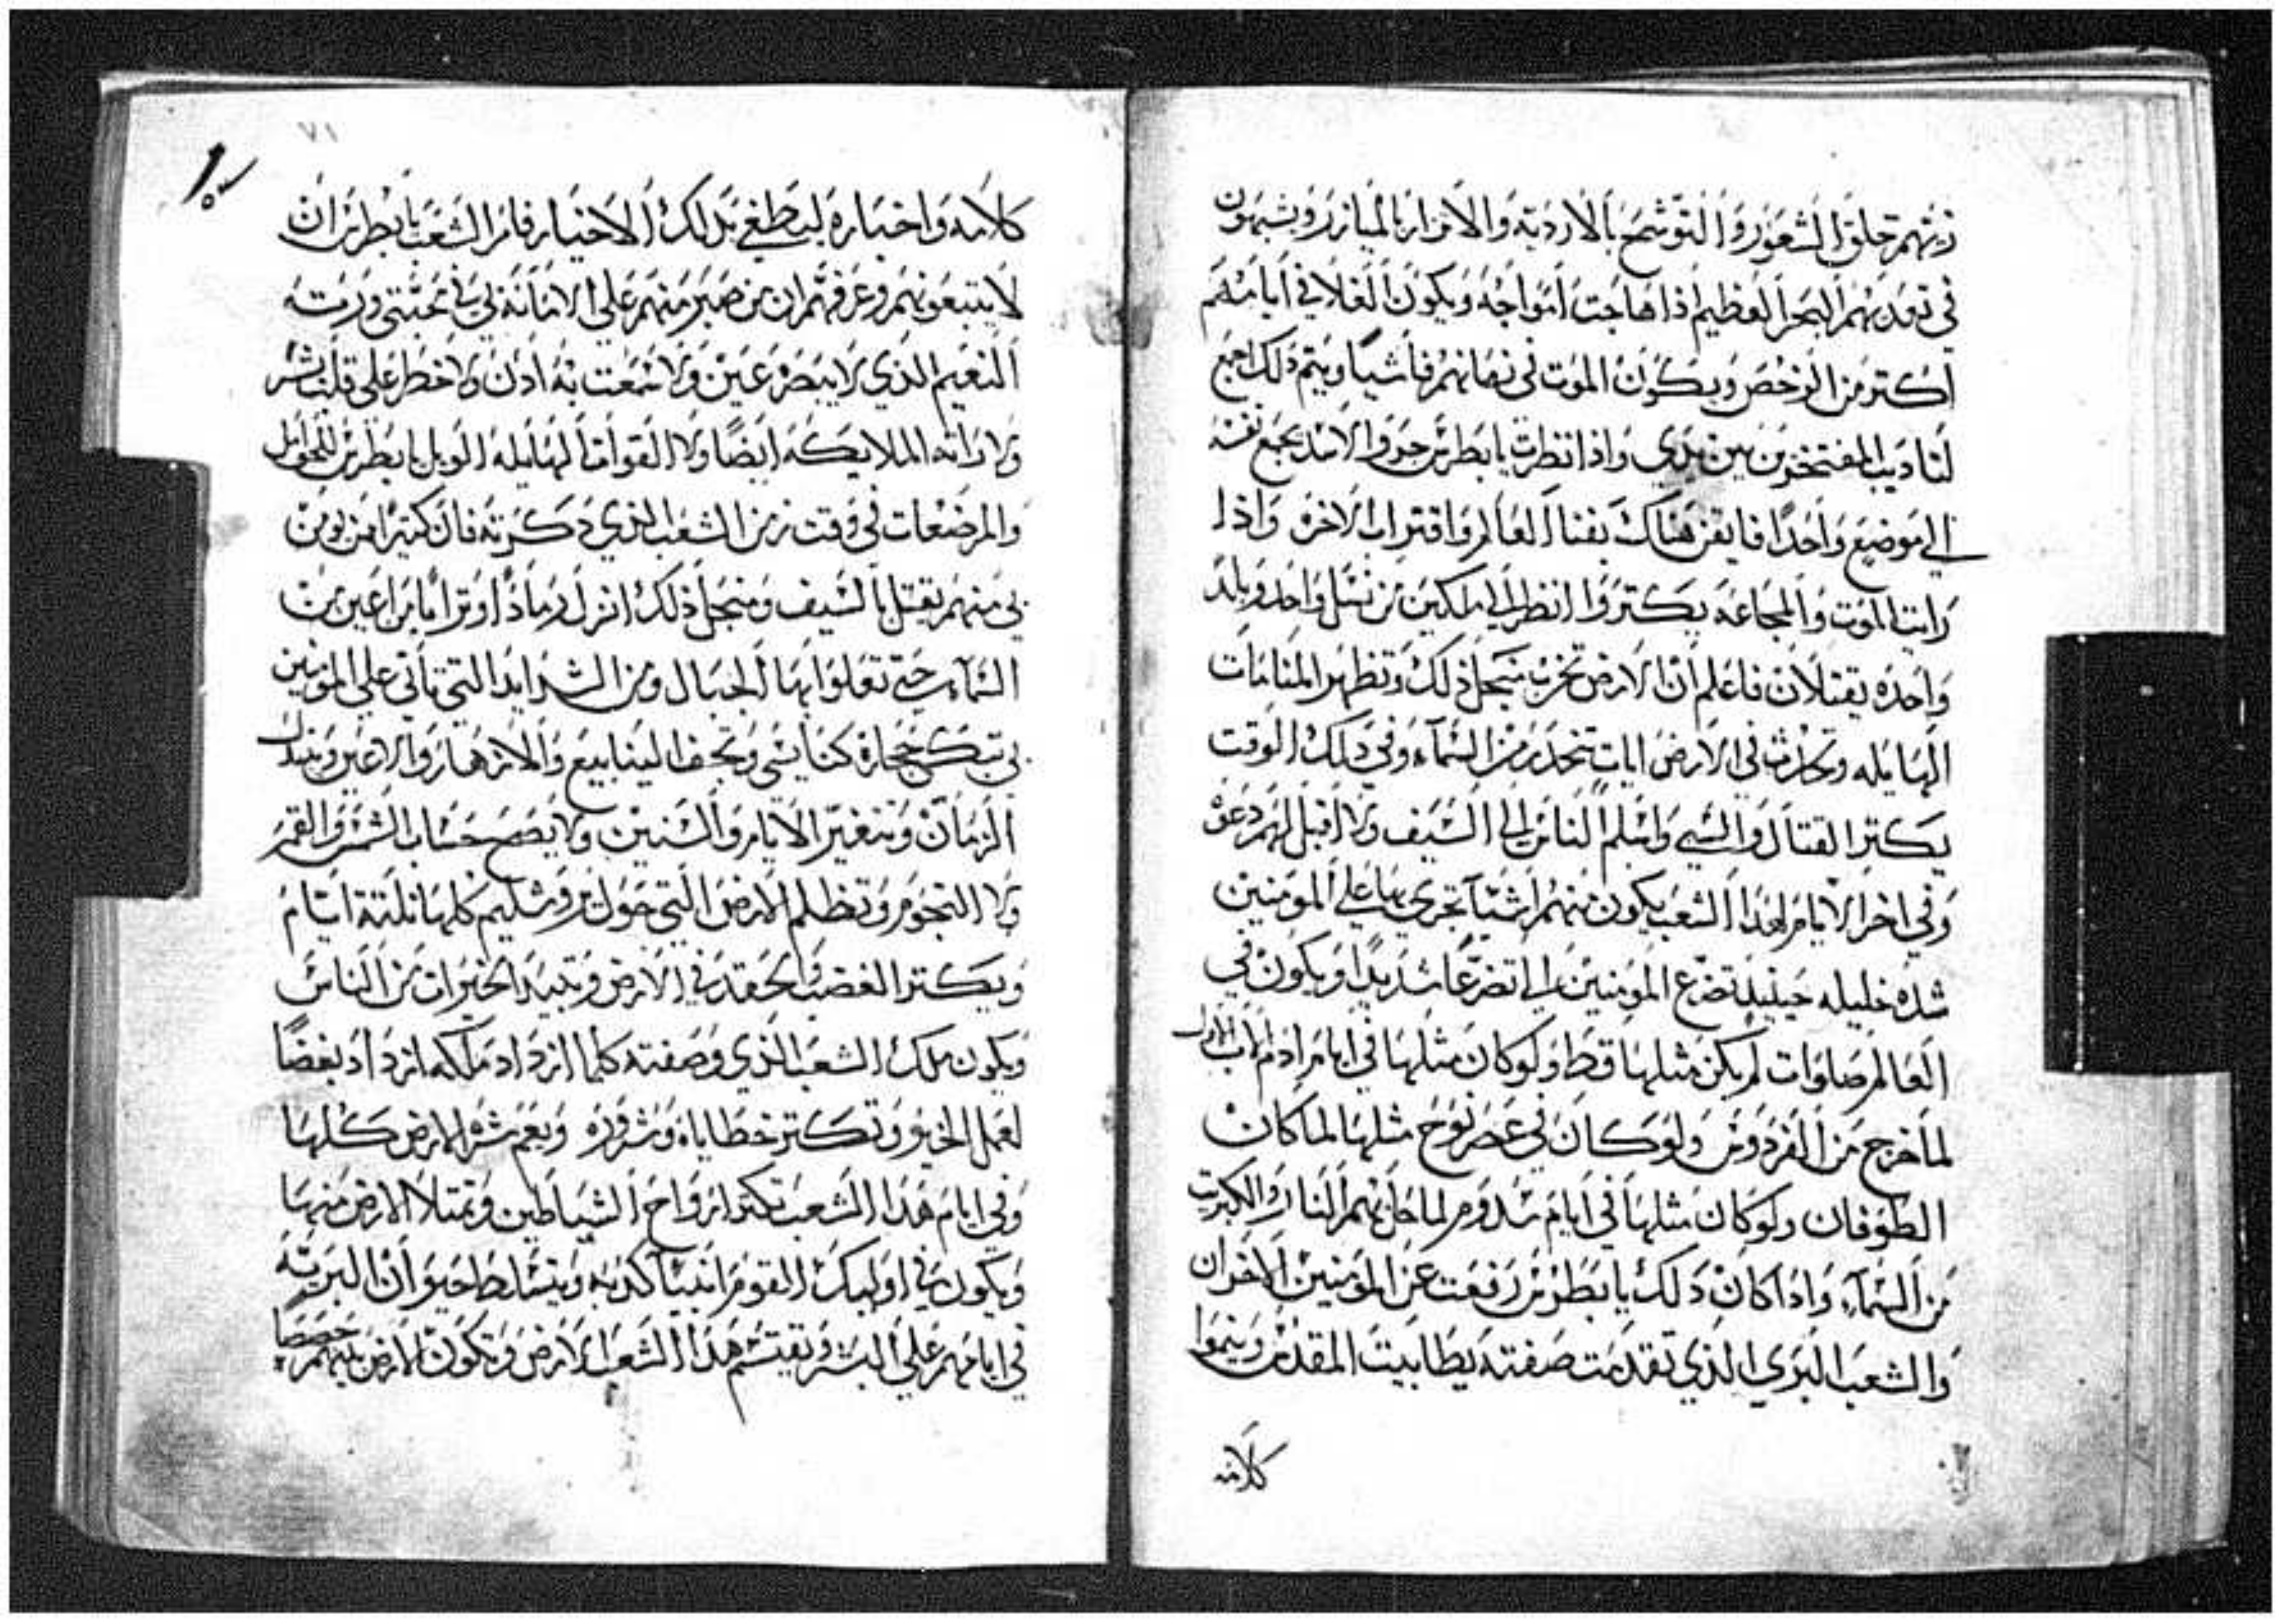 زيهم حلق الشعور والتوشح بالارديه والاتزار بالميازر ويشبهون
في تمديهم البحر العظيم اذا هاجت امواجه ويكون الغلا في ايامهم
اكتر من الرخص ويكون الموت في زمانهم فاشيا ويتم ذلك اجمع
لتاديب المفتخرين بين يدي واذا نظرت يا بطرس جرو الاسد يجمع نفسه
الي موضع واحدا فايقن هناك بفنا العالم واقتراب الاخره واذا
رايت الموت والمجاعه يكتروا انظر الي ملكين من نسل واحد وبلد
واحده يقتلان فاعلم ان الارض تخرب منجل ذلك وتظهر المنامات
الهايله وتحدث في الارض ايات تنحدر من السماء وفي ذلك الوقت
يكتر القتال والسبي واسلم الناس الي السيف ولا اقبل لهم دعوه
وفي اخر الايام لهذا الشعب يكون منهم اشيآ تجري بها علي المومنين
شده جليله حينيد تضرع المومنين الي تضرعا شديدا ويكون في
العالم صلوات لم يكن مثلها قط ولو كان مثلها في ايام ادم الاب الاول
لما خرج من الفردوس ولو كان في عصر نوح مثلها لما كان
الطوفان ولو كان مثلها في ايام سدوم لما حل بهم النار والكبريت
من السماء واذا كان ذلك يا بطرس رفعت عن المومنين الاحزان
والشعب البري الذي تقدمت صفته يطا بيت المقدس وينموا
كلامه
٧١
كلامه واخباره ليطغي بذلك الاخيار فامر الشعب يا بطرس ان
لا يتبعونهم وعرفهم ان من صبر منهم علي الامانه بي وفي محبتي ورته
النعيم الذي لا يبصره عين ولا سمعت به ادن ولا خطر علي قلب بشر
ولا راته الملايكه ايضا ولا القوات الهايله الويل يا بطرس للحوامل
والمرضعات في وقت زمن الشعب الذي دكرته فان كتيرا من يومن
بي منهم يقتل بالسيف ومنجل ذلك انزل رمادا وترابا من اعين من
السماء حتي تعلوا بها الجبال ومن الشدايد التي تاتي علي المومنين
بي تبكي حجارة كنايسي وتجف الينابيع والانهار والاعين ويتبدل
الزمان وتتغير الايام والسنين ولا يصح حساب الشمس والقمر
ولا النجوم وتظلم الارض التي حول يروشليم كلها تلتة ايام
ويكتر الغضب والحقد في الارض وتبيد الخيرات من الناس
ويكون ملك الشعب الذي وصفته كلما ازداد ملكه ازداد بغضا
لعمل الخير وتكتر خطاياه وشروره ويعم شره الارض كلها
وفي ايام هذا الشعب تكتر ارواح الشياطين وتمتلا الارض منها
ويكون في اوليك القوم انبيآ كدبه ويتسلط حيوان البريه
في ايامهم علي البشر ويقتسم هذا الشعب الارض وتكون الارض بينهم حصصا